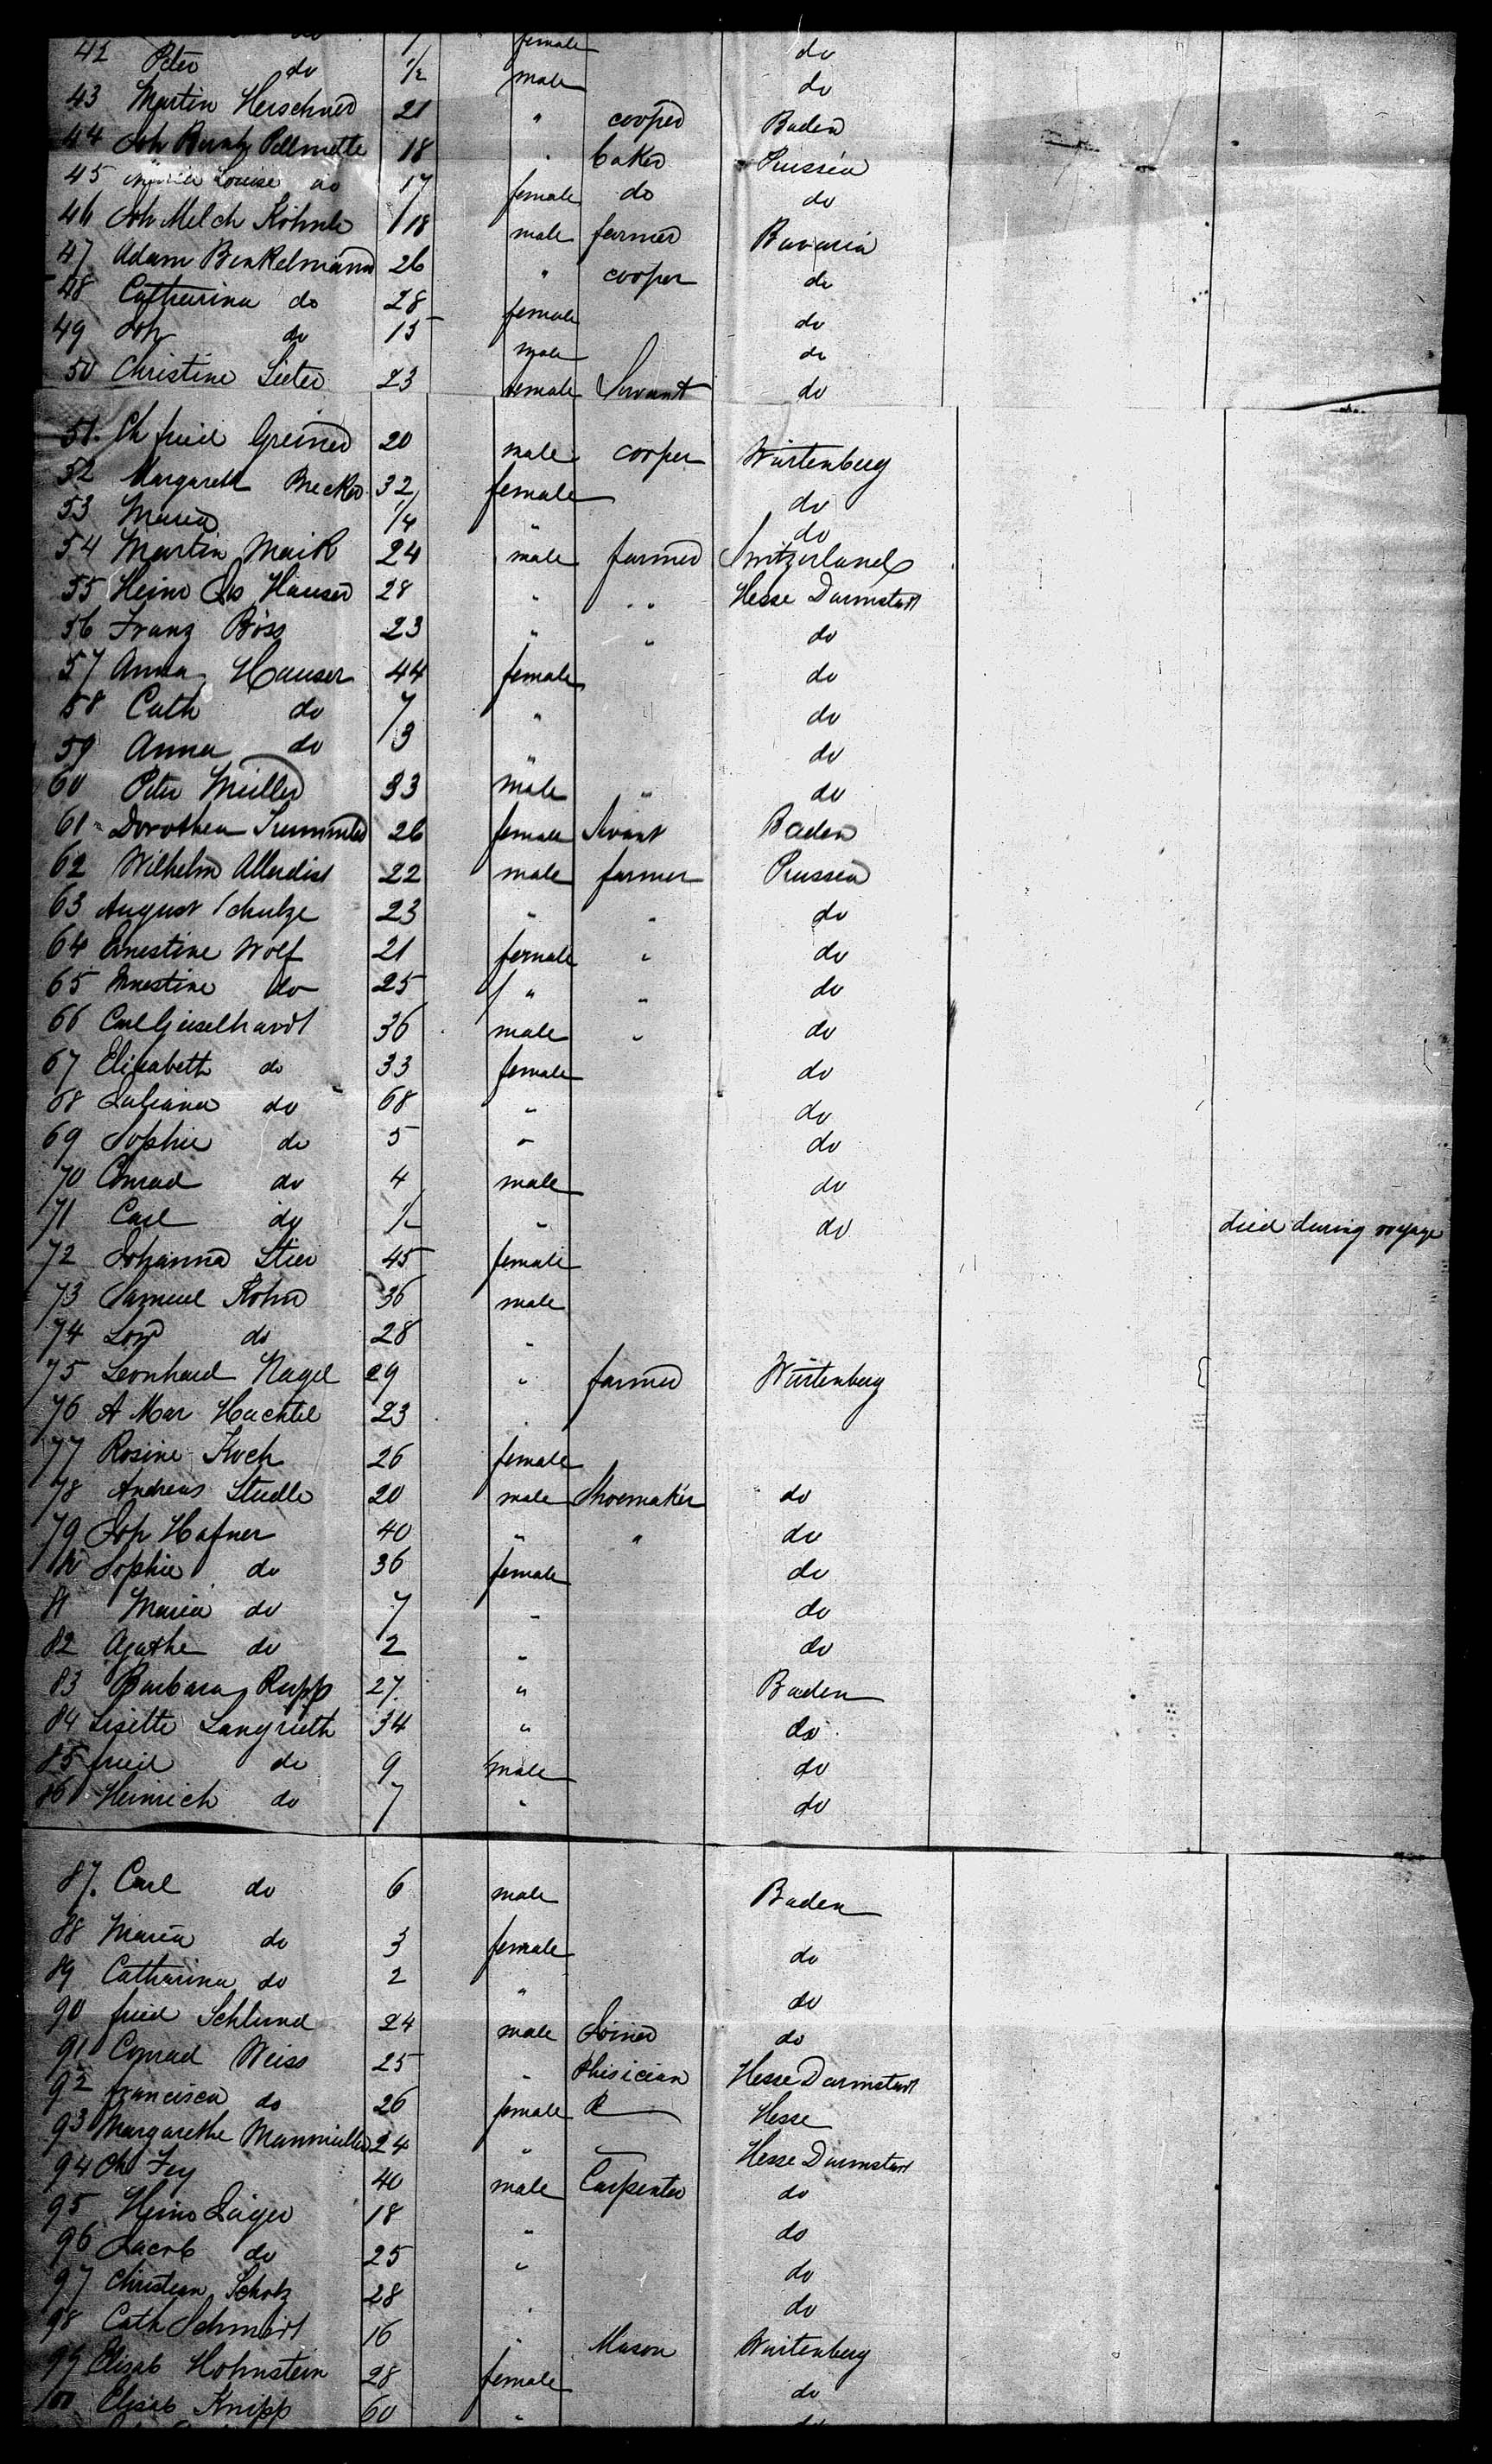 do 1 female do
42 Peter do 1/2 male do
43 Martin Herschner 21 " cooper Baden
44 Joh Pellmette 18 " baker Prussia
45 Louise do 17 female do do
46 Joh Melch Köhnle 18 male farmer Bavaria
47 Adam Benkelmann 26 " cooper do
48 Catharina do 28 female do
49 Joh do 15 male do
50 Christine Sieter 23 female Servant do
51. Ch fried Greiner 20 male cooper Würtenberg
52 Margareth Becker 32 female do
53 Maria 1/4 " do
54 Martin Maik 24 male farmer Switzerland
55 Heinr Hauser 28 " " Hesse Darmstadt
56 Franz Böss 23 " " do
57 Anna Hauser 44 female do
58 Cath do 7 " do
59 Anna do 3 " do
60 Peter Müller 33 male " do
61 Dorothea 26 female Servant Baden
62 Wilhelm Allerdist 22 male farmer Prussia
63 August Schulze 23 " " do
64 Ernestine Wolf 21 female " do
65 Ernestine do 25 " " do
66 Carl Geiselhardt 36 male " do
67 Elisabeth do 33 female do
68 Juliana do 68 " do
69 Sophie do 5 " do
70 Conrad do 4 male do
71 Carl do 1/2 " do died during voyage
72 Johanna Stier 45 female
73 Samuel Kohn 36 male
74 do 28 "
75 Leonhard Nagel 29 " farmer Würtenberg
76 A Mar Hachtel 23 "
77 Rosine Koch 26 female
78 Andreas Studle 20 male Shoemaker do
79 Joh Hafner 40 " " do
80 Sophie do 36 female do
81 Maria do 7 " do
82 Agathe do 2 " do
83 Barbara Rupp 27. " Baden
84 Lisette Langrieth 34 " do
85 fried do 9 male do
86 Heinrich do 7 " do
87. Carl do 6 male Baden
88 Maria do 3 female do
89 Catharina do 2 " do
90 fried Schlund 24 male Joiner do
91 Conrad Weiss 25 " Phisician Hesse Darmstadt
92 francisca do 26 female Hesse
93 Margarethe Manmüller 24 " Hesse Darmstadt
94 Ch Fey 40 male Carpenter do
95 Heinr Jäger 18 " do
96 Jacob do 25 " do
97 Christian Scholz 28 " do
98 Cath Schmidt 16 " Mason Würtenberg
99 Elisab Hohnstein 28 female do
100 Elisab Knipp 60 " do